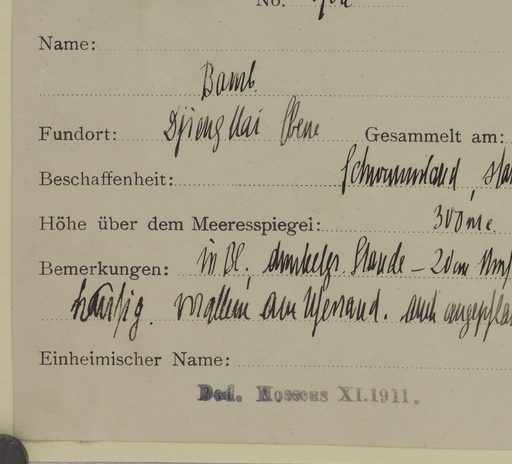 No.
Name:
Bamb.
Fundort: Djieng Mai Ebene Gesammelt am:
Beschaffenheit: Schwemmland,
Höhe über dem Meeresspiegel: 300 m.
Bemerkungen: in Bl. dunkelgr. Staude – 20cm
häufig. vor allem am Uferrand. auch angepfla
Einheimischer Name:
Ded. Hosseus XI.1911.